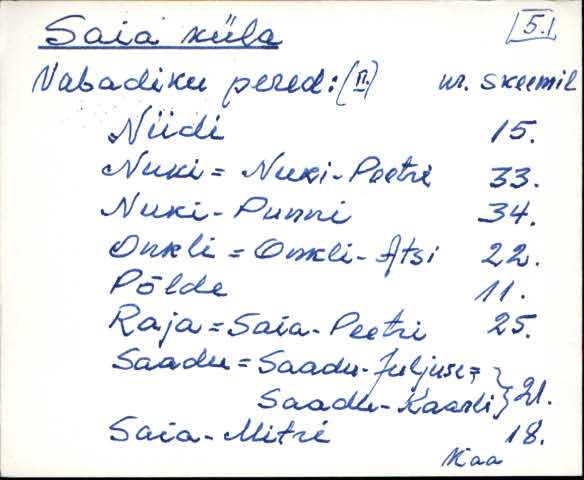 Saia küla 5.1
Vabadiku pered: (II.) nr. skeemil
Niidi 15.
Nuki = Nuki-Peetri 33.
Nuki-Punni 34.
Onkli = Onkli-Atsi 22.
Põlde 11.
Raja = Saia-Peetri 25.
Saadu = Saadu-Juljuse =
Saadu-Kaarli } 21.
Saia-Mitri 18.
Kaa